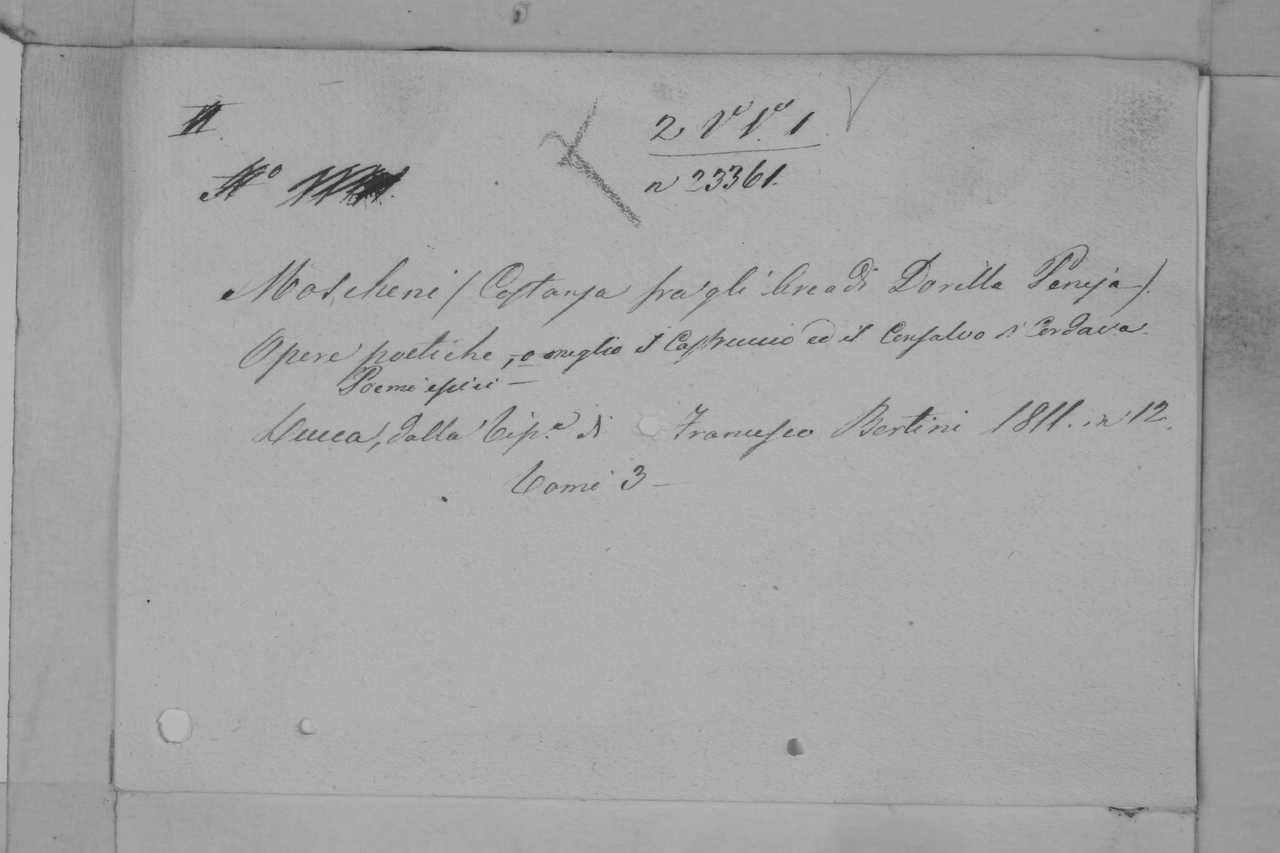 2 V° V.° 1
N°
n 23361.
Moscheni (Costanza fra gli Arcadi Dorilla Peneja).
Opere poetiche, o meglio il Castruccio ed il Consalvo di Cordova.
Poemi epici —
Lucca, dalla Tip.a di Francesco Bertini 1811. in 12.
Tomi 3 —